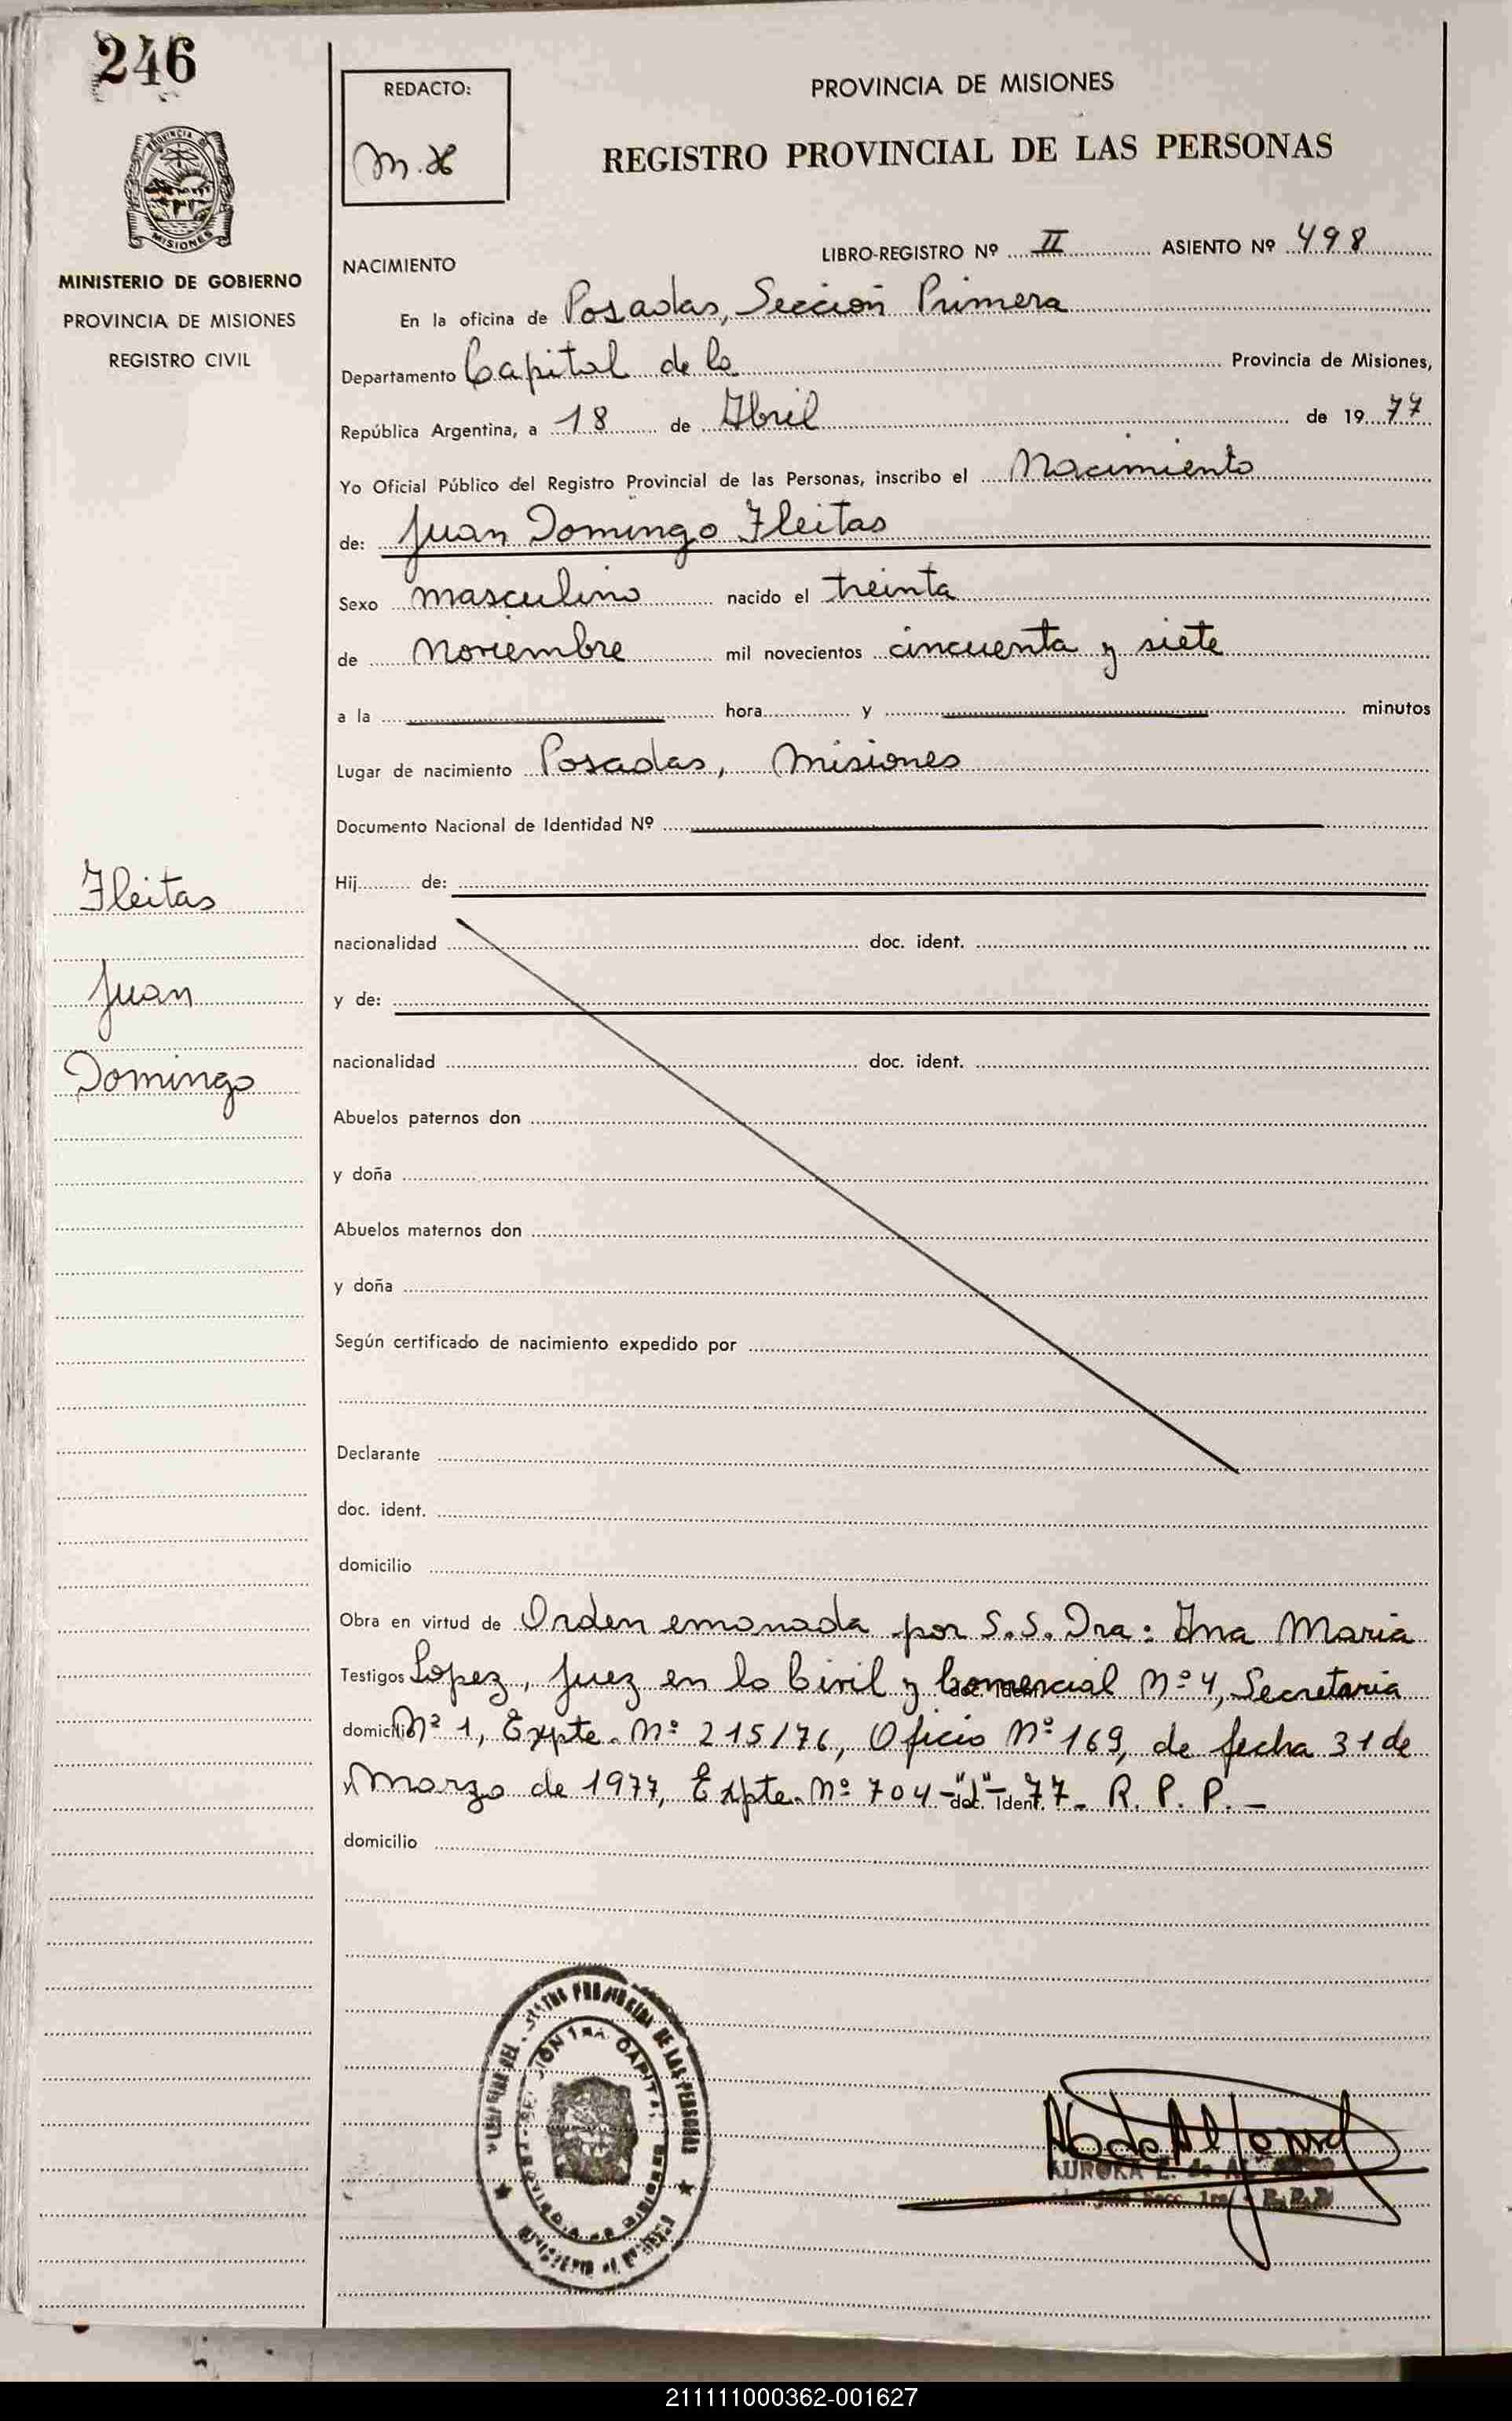 246
PROVINCIA
MISIONES
MINISTERIO DE GOBIERNO
PROVINCIA DE MISIONES
REGISTRO CIVIL
Fleitas
Juan
Domingo
REDACTO:
PROVINCIA DE MISIONES
REGISTRO PROVINCIAL DE LAS PERSONAS
LIBRO-REGISTRO Nº II ASIENTO Nº 498
NACIMIENTO
En la oficina de Posadas, Sección Primera
Departamento Capital de la Provincia de Misiones,
República Argentina, a 18 de Abril de 1977
Yo Oficial Público del Registro Provincial de las Personas, inscribo el Nacimiento
de: Juan Domingo Fleitas
Sexo masculino nacido el treinta
de Noviembre mil novecientos cincuenta y siete
a la hora y minutos
Lugar de nacimiento Posadas, Misiones
Documento Nacional de Identidad Nº
Hij de:
nacionalidad doc. ident.
y de:
nacionalidad doc. ident.
Abuelos paternos don
y doña
Abuelos maternos don
y doña
Según certificado de nacimiento expedido por
Declarante
doc. ident.
domicilio
Obra en virtud de Orden emanada por S.S. Dra: Ana Maria
Testigos Lopez, Juez en lo Civil y Comercial Nº 4, Secretaria
domicilio Nº 1, Expte. Nº 215/76, Oficio Nº 169, de fecha 31 de
y Marzo de 1977, Expte. Nº 704 - doc. ident. 77- R. P. P. -
domicilio
SECCION 1RA. CAPITAL
PROVINCIAL DE LAS PERSONAS
AURORA E. de
Secc. 1ra. R.P.P.
211111000362-001627